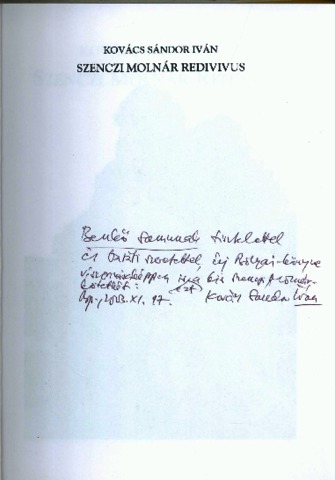 KOVÁCS SÁNDOR IVÁN
SZENCZI MOLNÁR REDIVIVUS
Benkő Samunak tisztelettel
és baráti szeretettel, új Bólyai-könyve
viszonzásképpen ezt a kis Szenczi Molnár-
kötetkét:
Bp., 2003. XI. 17. Kovács Sándor Iván